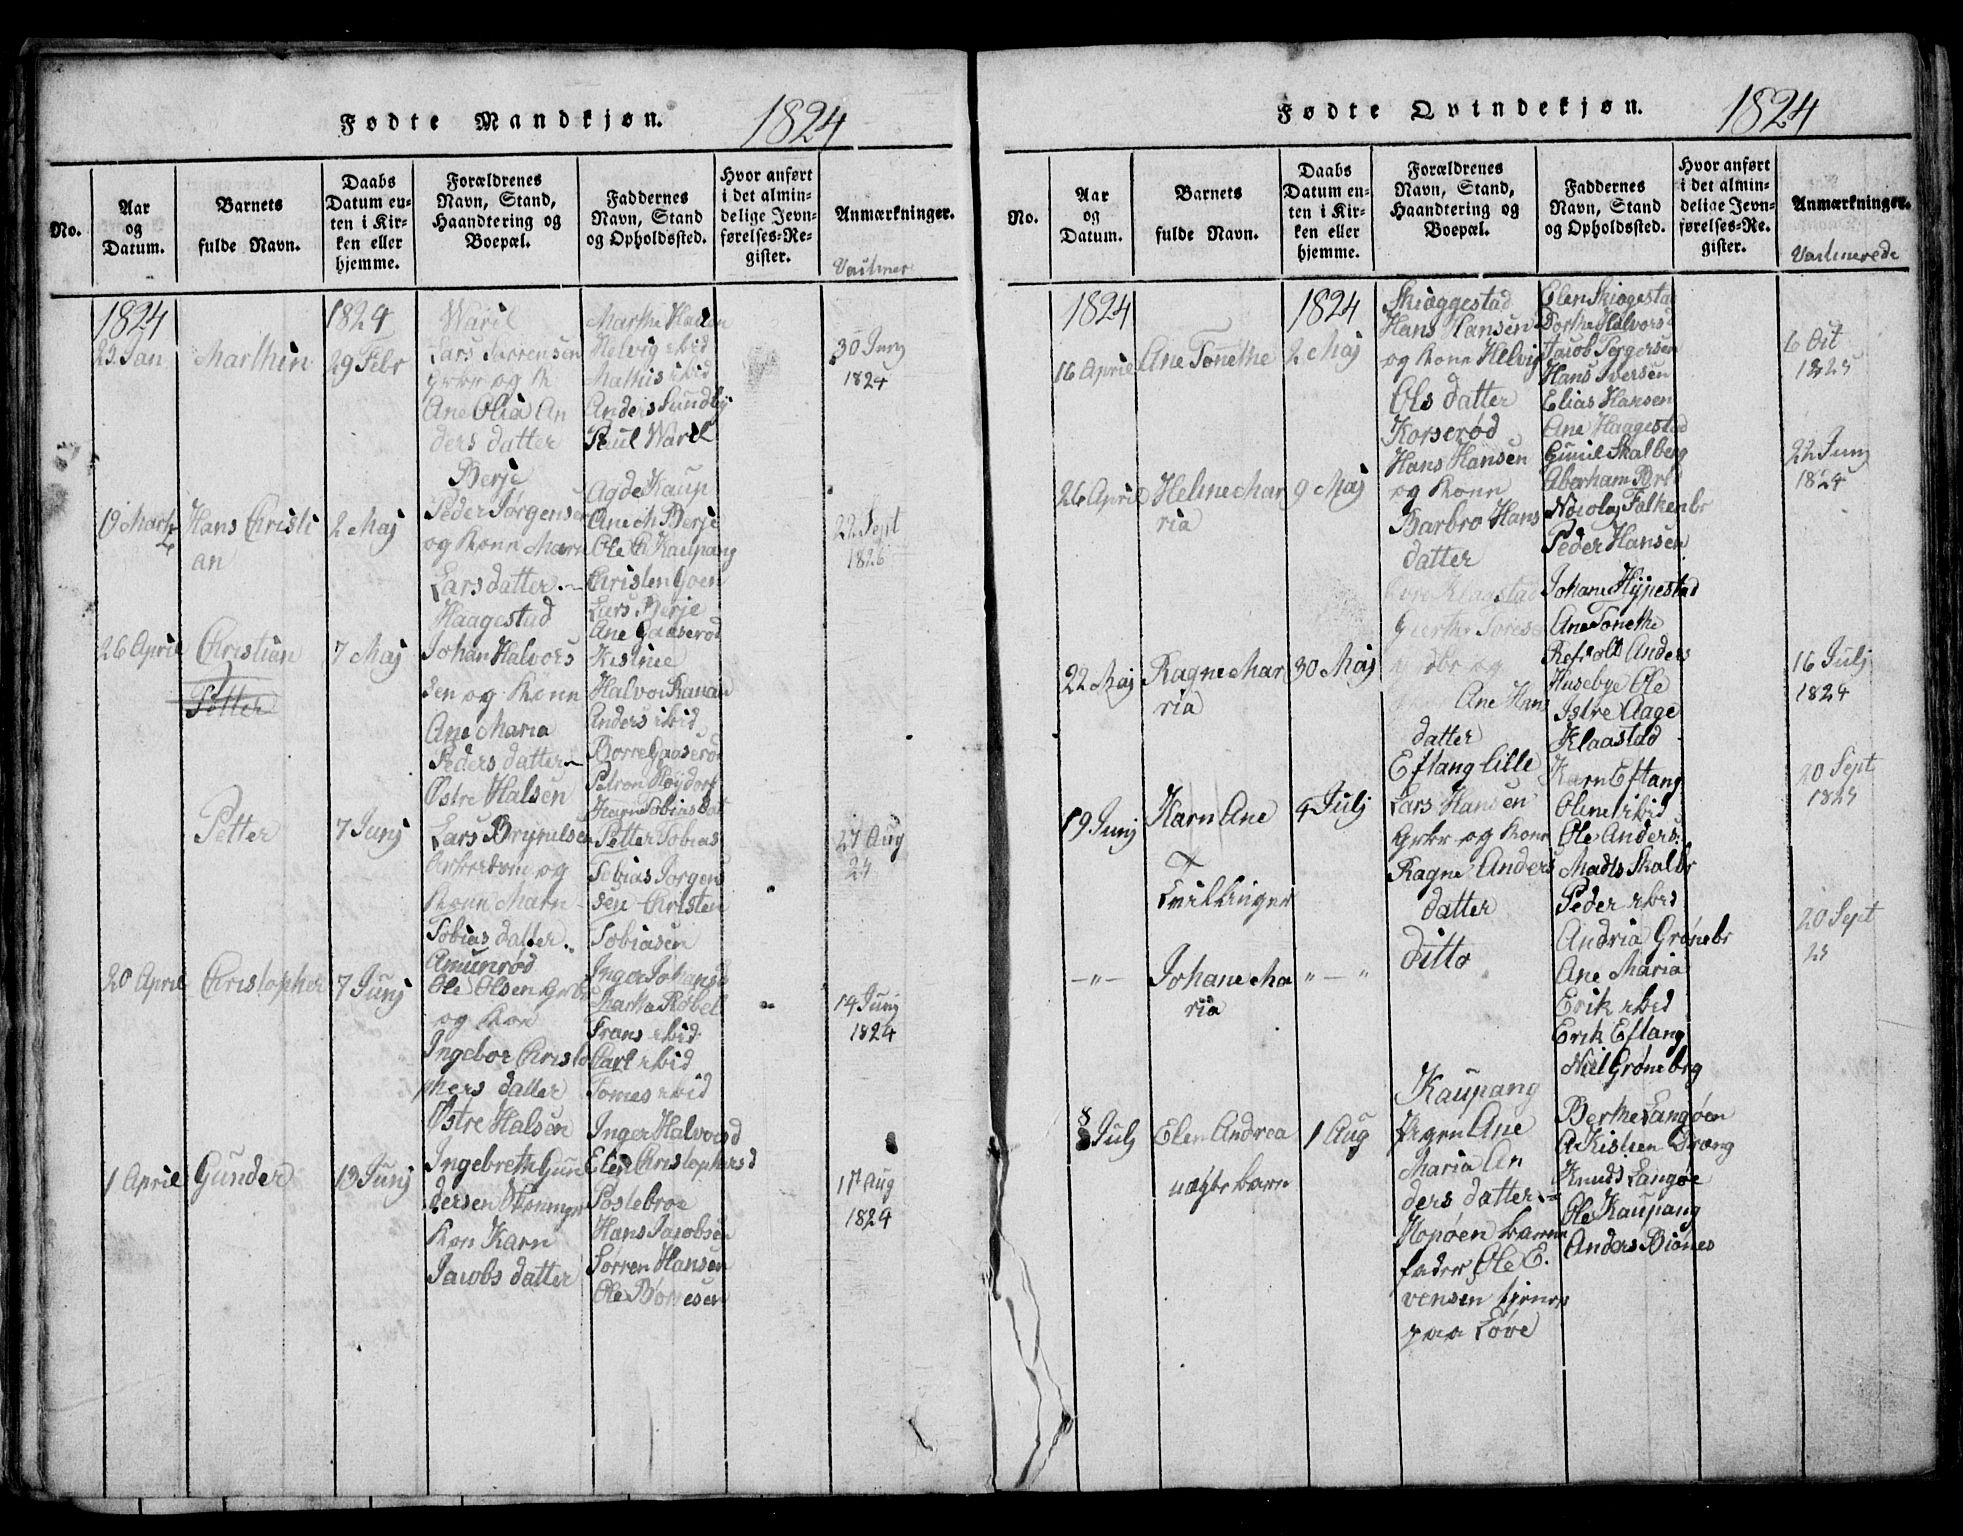 Fødte Mandkjøn. 1824
No.
Aar
og
Datum.
Barnets
fulde Navn.
Daabs
Datum en-
ten i Kir-
ken eller
hjemme.
Forældrenes
Navn, Stand,
Haandtering og
Boepæl.
Faddernes
Navn, Stand
og Opholdssted.
Hvor anført
i det almin-
delige Jevn-
førelses-Re-
gister.
Anmærkninger.
1824
22 Jan
Marthin
1824
29 Febr
Waril
Lars Sørrensen
og K
Ane Olia An
ders datter
Marthe Halsen
Helvig ibid
Mathis ibid
Anders Sundby
Poul Waril
30 Junj
1824
19 Marts
Hans Christi
an
2 Maj
Berje
Peder Jørgensen
og Kone Marn
Lars datter
Agde Kaup
Anech Berje
Ole Ch Kaupang
Christen Goen
Lars Berje
22 Sept
1826
26 April
Christian
Petter
7 Maj
Haagestad
Johan Halvors
sen og Kone
Ane Maria
Peders datter
Ane Gaaserød
Kistine
Halvor Ranan
Anders ibid
Borre Gaaserød
Petter
7 Junj
Østre Halsen
Lars Brynulsen
og
Kone Marn
Tobias datter
Petron Høydorf
Karn Tobias dat
Petter Tobias
Tobias Jorgens
sen Christen
Tobiasen
27 Aug
24
20 April
Christopher
7 Junj
Amunrød
Ole Olsen Grbr
og Kon
Ingebor Christo
phers datter
Inger Johansd
Martha Røbel
Frans ibid
Carl ibid
Tomes ibid
14 Junj
1824
1 April
Gunder
13 Junj
Østre Halsen
Ingebreth Gun
dersen
Kon Karn
Jacobs datter
Inger Halvorsd
Elen Christophersd
Postebroe
Hans Jacobsen
Sørren Hansen
Ole Børresen
17 Aug
1824
Fødte Qvindekjøn. 1824
No.
Aar
og
Datum.
Barnets
fulde Navn.
Daabs
Datum en-
ten i Kir-
ken eller
hjemme.
Forældrenes
Navn, Stand,
Haandtering og
Boepæl.
Faddernes
Navn, Stand
og Opholdssted.
Hvor anført
i det almin-
delige Jevn-
førelses-Re-
gister.
Anmærkninger.
1824
16 April
Ane Tonethe
1824
2 Maj
Skiæggestad
Hans Hansen
og Kone Helvig
Ols datter
Elen Skiøgestad
Dorthe Halvorsd
Jacob Torgersen
Hans Iversen
Elias Hansen
6 Oct
1825
26 April
Helme Mar
ria
9 Maj
Korserød
Hans Hansen
og Kone
Barbro Hans
datter
Ane Haagestad
Gunil Skalberg
Aberham
Nicolaj Falkenbr
Peder Hansen
22 Junj
1824
22 Maj
Ragne Mar
ria
30 Maj
Klaastad
og
Ane Hans
datter
Johane Hypestad
Ane Tonethe
Anders
Husebye Ole
Istre Aage
Klaastad
16 Julj
1824
19 Junj
Karn Ane
Tvillinger
4 Julj
Eftang lille
Lars Hansen
Grbr og Kone
Ragne Anders
datter
Karn Eftang
Oline ibid
Ole Anders
Madts Skalbr
Peder ibid
20 Sept
1825
— " —
Johane Ma
ria
" — "
Ditto
Andria Grønebr
Ane Maria
Erik ibid
Erik Eftang
Niel Grøneberg
20 Sept
25
8 Julj
Elen Andrea
uægte barn
1 Aug
Kaupang
Pigen Ane
Maria An
ders datter
Hopøen barne
fader Ole E.
vensen tjener
paa Løve
Berthe Langøen
A Kistien Vrang
Knud Langøe
Ole Kaupang
Anders Biønes